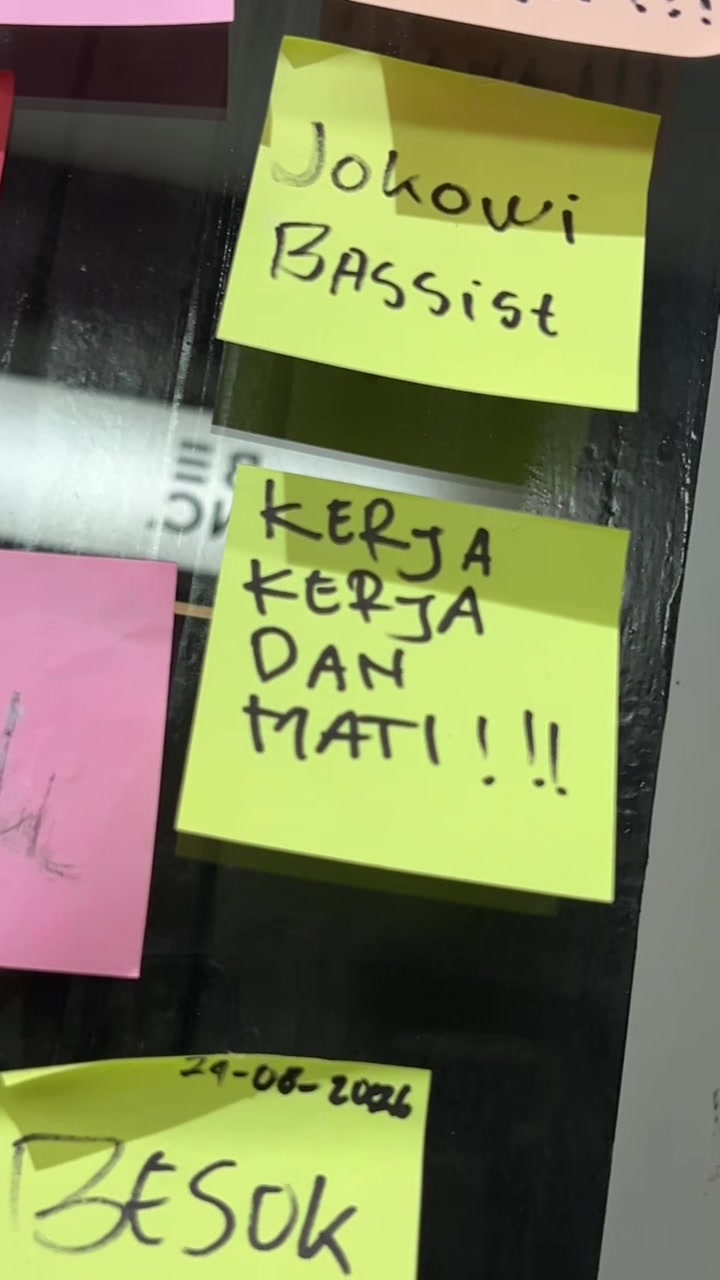 Jokowi
BASSist
KERJA
KERJA
DAN
MATI!!!
29-08-2026
BESOK